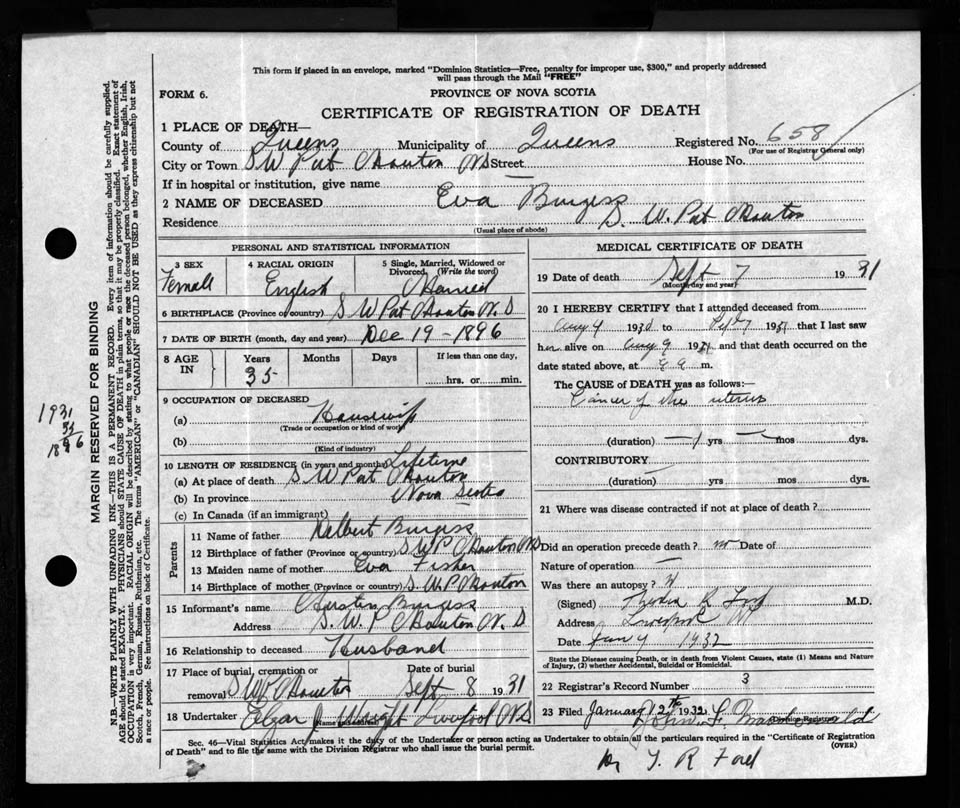 This form if placed in an envelope, marked "Dominion Statistics—Free, penalty for improper use, $300," and properly addressed
will pass through the Mail "FREE"
FORM 6.
PROVINCE OF NOVA SCOTIA
CERTIFICATE OF REGISTRATION OF DEATH
1 PLACE OF DEATH—
County of Queens Municipality of Queens Registered No. 658
(For use of Registrar General only)
City or Town S W Port Mouton NS Street House No.
If in hospital or institution, give name
2 NAME OF DECEASED Eva Burgess
Residence S. W. Port Mouton
(Usual place of abode)
PERSONAL AND STATISTICAL INFORMATION
3 SEX 4 RACIAL ORIGIN 5 Single, Married, Widowed or Divorced, (Write the word)
Female English Married
6 BIRTHPLACE (Province or country) S W Port Mouton N. S
7 DATE OF BIRTH (month, day and year) Dec 19 - 1896
8 AGE IN Years Months Days If less than one day,
35 hrs. or min.
9 OCCUPATION OF DECEASED
(a) Housewife
(Trade or occupation or kind of work)
(b)
(Kind of industry)
10 LENGTH OF RESIDENCE (in years and months) Lifetime
(a) At place of death S W Port Mouton
(b) In province Nova Scotia
(c) In Canada (if an immigrant)
Parents
11 Name of father Burgess
12 Birthplace of father (Province or country) S. W P Mouton NS
13 Maiden name of mother Eva Fisher
14 Birthplace of mother (Province or country) S. W. P. Mouton
15 Informant's name Burgess
Address S. W. P Mouton N. S
16 Relationship to deceased Husband
17 Place of burial, cremation or removal S W P Mouton Date of burial Sept 8 1931
18 Undertaker J Wright Liverpool NS
MEDICAL CERTIFICATE OF DEATH
19 Date of death Sept 7 1931
(Month, day and year)
20 I HEREBY CERTIFY that I attended deceased from
Aug 9 193 to Sept 7 1931 that I last saw
her alive on Aug 9 1931 and that death occurred on the
date stated above, at m.
The CAUSE OF DEATH was as follows:—
Cancer of the uterus
(duration) 1 yrs — mos dys.
CONTRIBUTORY
(duration) yrs mos dys.
21 Where was disease contracted if not at place of death?
Did an operation precede death? no Date of
Nature of operation —
Was there an autopsy? N
(Signed) M.D.
Address Liverpool NS
Date Jan 9 1932
State the Disease causing Death, or in death from Violent Causes, state (1) Means and Nature
of Injury, (2) whether Accidental, Suicidal or Homicidal.
22 Registrar's Record Number 3
23 Filed January 12th 1932 John F.
Division Registrar
Sec. 46—Vital Statistics Act, makes it the duty of the Undertaker or person acting as Undertaker to obtain all the particulars required in the "Certificate of Registration
of Death" and to file the same with the Division Registrar who shall issue the burial permit.
(OVER)
by T. R Ford
1931
35
1896
MARGIN RESERVED FOR BINDING
N.B.—WRITE PLAINLY WITH UNFADING INK—THIS IS A PERMANENT RECORD. Every item of information should be carefully supplied.
AGE should be stated EXACTLY. PHYSICIANS should STATE CAUSE OF DEATH in plain terms, so that it may be properly classified. Exact statement of
OCCUPATION is very important. RACIAL ORIGIN will be described by stating to what people or race the deceased person belonged, whether English, Irish,
Scotch, French, German, Russian, Ruthenian, etc. The terms "AMERICAN" or "CANADIAN" SHOULD NOT BE USED as they express citizenship but not
a race or people. See instructions on back of Certificate.